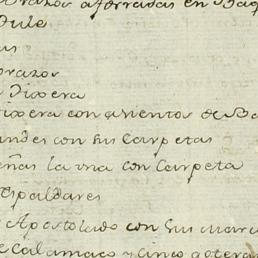 brazos aforradas en Baq
Dule
as
brazos
a Tixera
tixera con asientos de Ba
andes con sus Carpetas
eñas la una con Carpeta
espaldares
Apostolado con sus marc
e Calamaco y Cinco goteras